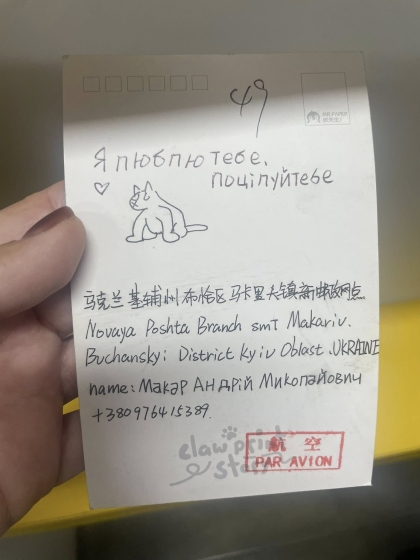 49
Я люблю тебе,
поцілуйтебе
马克兰基辅州布恰区马卡里夫镇新邮政网点
Novaya Poshta Branch smT Makariv.
Buchanskyi District Kyiv Oblast.UKRAINE
name: Макар Андрій Миколайович
+380976415389
claw print
航空
PAR AVION